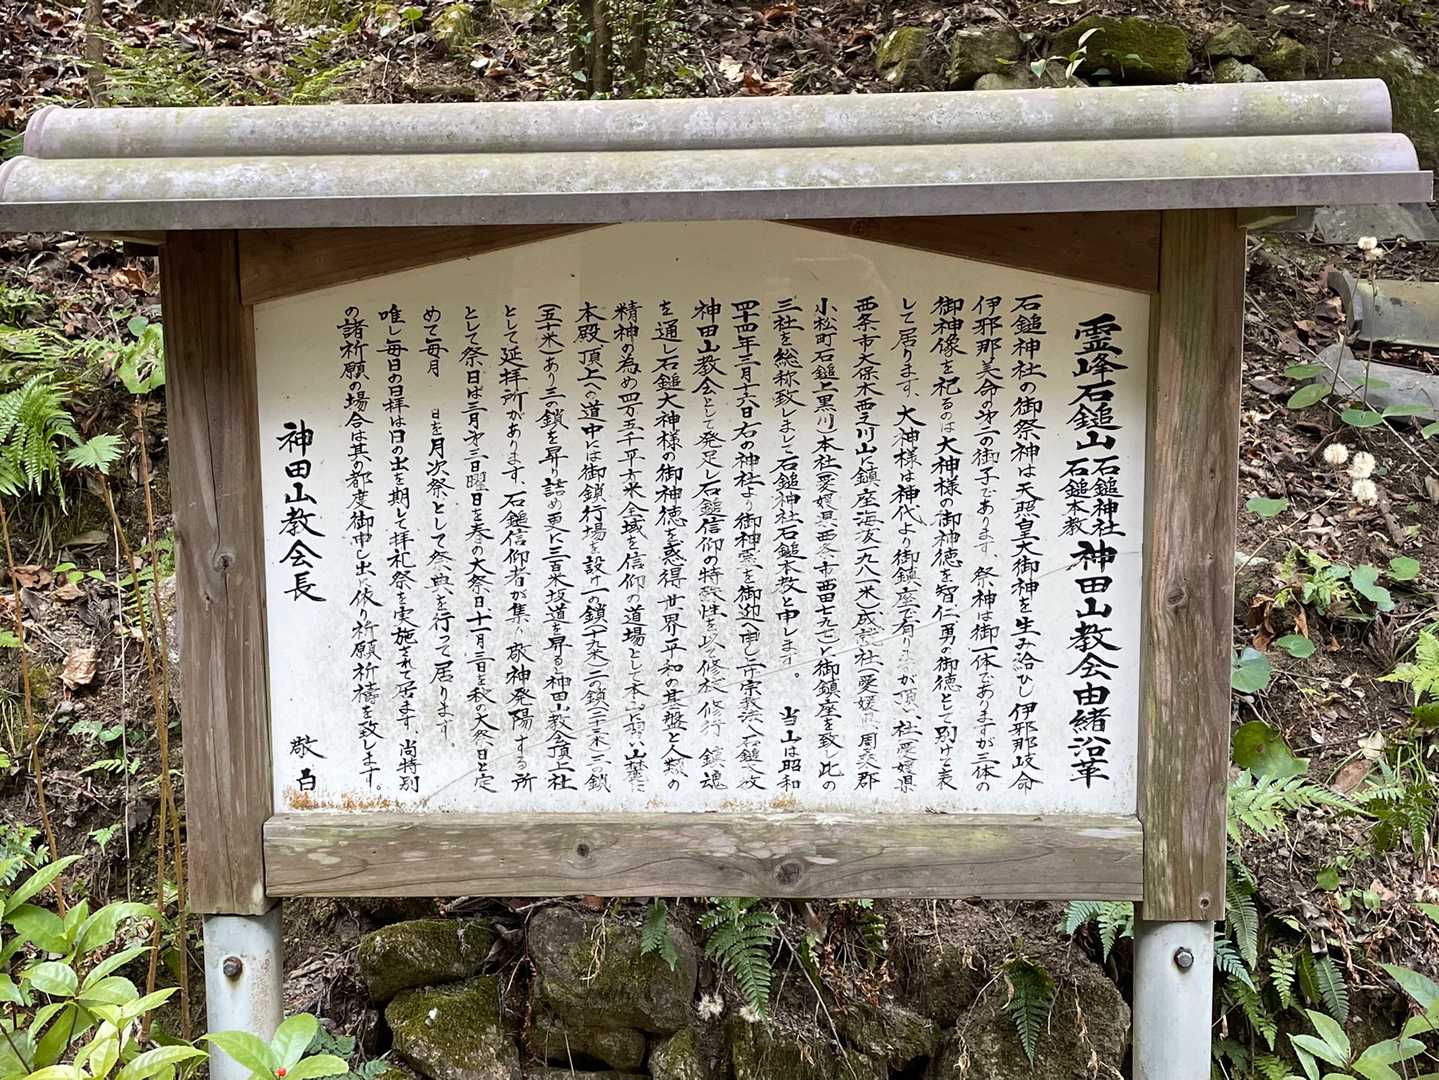 霊峰石鎚山 石鎚神社 石鎚本教 神田山教会由緒沿革
石鎚神社の御祭神は天照皇大御神を生み給ひし伊邪那岐命
伊邪那美命の第二の御子であります、祭神は御一体でありますが三体の
御神像を祀るのは大神様の御神徳を智、仁、勇の御徳として別けて表
して居ります、大神様は神代より御鎮座有り 頂上社愛媛県
西条市大保木西之川山に鎮座海抜一九八一米)成就社(愛媛県周桑郡
小松町石鎚上黒川)本社(愛媛県西条市西田七九七)に御鎮座を致し此の
三社を総称致しまして石鎚神社石鎚本教と申します。 当山は昭和
四十四年三月十六日右の神社より御神霊を御迎へ申し 宗教法人石鎚本教
神田山教会として発足し石鎚信仰の特殊性を以て修校修行、鎮魂
を通し石鎚大神様の御神徳を惑得、世界平和の基盤と人類の
精神の為め四万五千平方米全域を信仰の道場として本山 山麓に
本殿、頂上への道中には御鎖行場を設け一の鎖(十九米)二の鎖(二十三米)三鎖
(五十米)あり三の鎖を昇り詰め更に三百米坂道を昇ると神田山教会頂上社
として延拝所があります、石鎚信仰者が集い敬神発陽する所
として祭日は三月第三日曜日を春の大祭日、十一月三日を秋の大祭日と定
めて毎月 日を月次祭として祭典を行って居ります。
唯し毎日の日拝は日の出を期して拝礼祭を実施されて居ます、尚特別
の諸祈願の場合は其の都度御申し出に依り祈願祈祷を致します。
神田山教会長
敬白